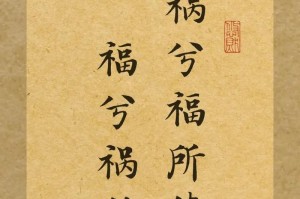 祸兮福所
福兮祸